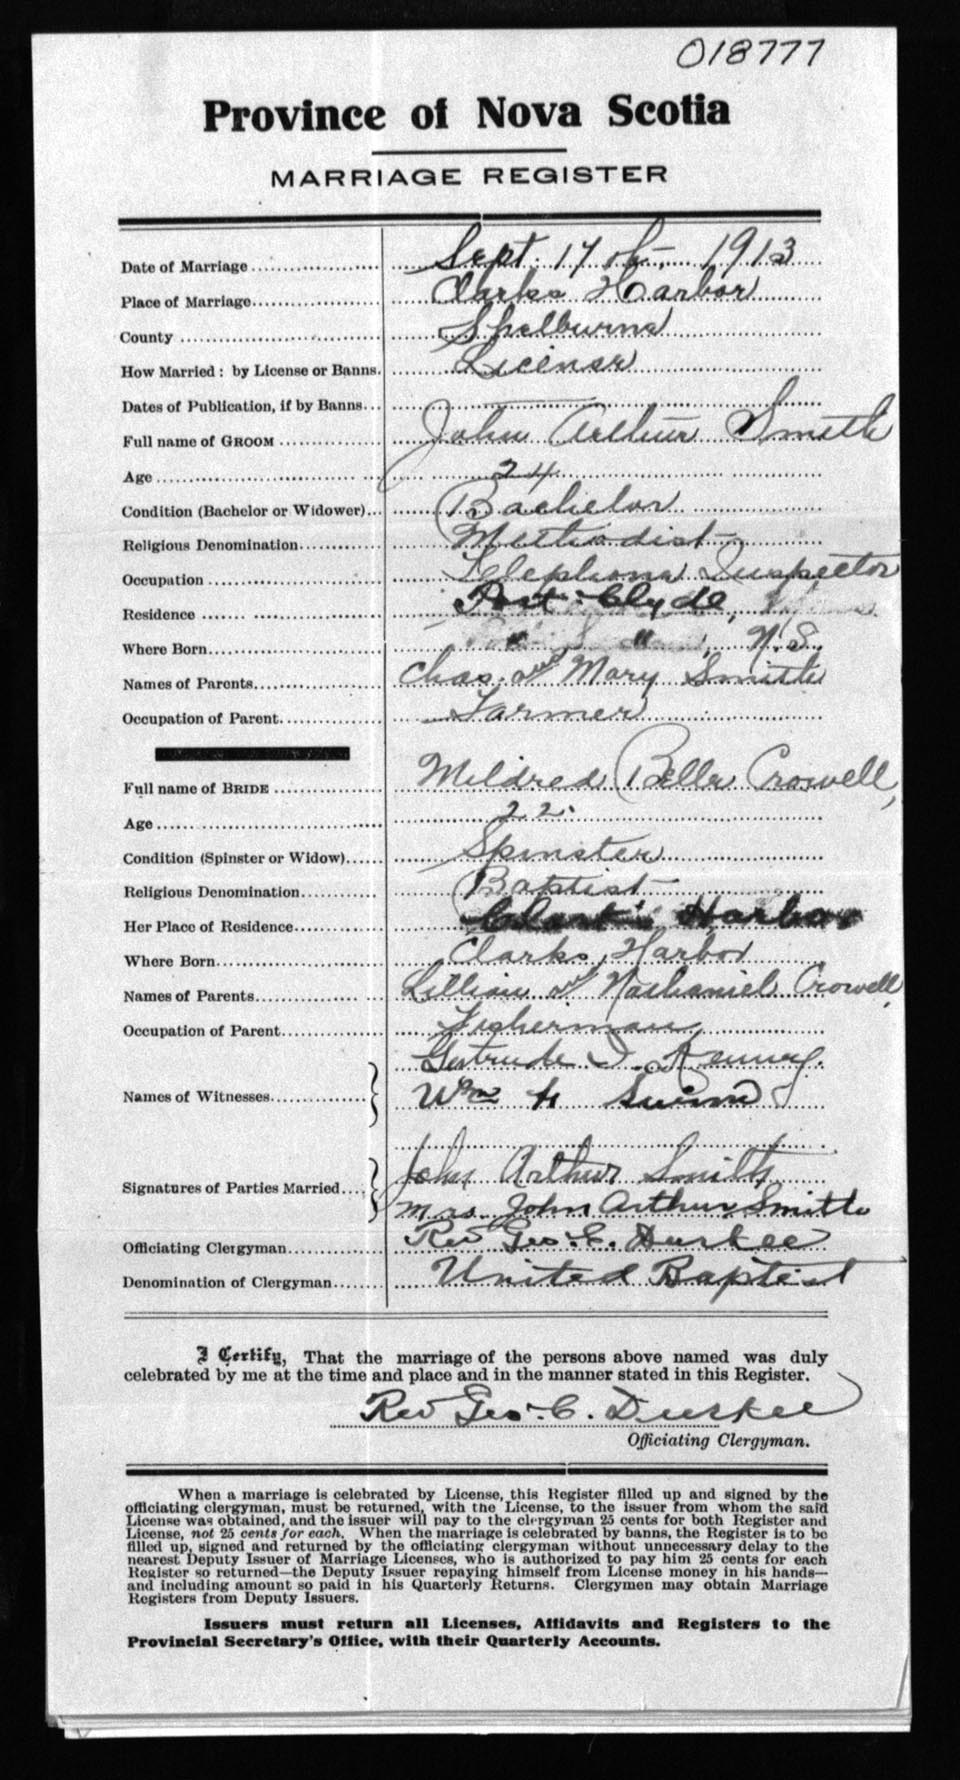 018777
Province of Nova Scotia
MARRIAGE REGISTER
Date of Marriage Sept. 17th, 1913
Place of Marriage Clarks Harbor
County Shelburne
How Married: by License or Banns. License
Dates of Publication, if by Banns
Full name of GROOM John Arthur Smith
Age 24
Condition (Bachelor or Widower) Bachelor
Religious Denomination Methodist
Occupation Telephone Inspector
Residence Port Clyde,
Where Born " " , N.S.
Names of Parents Chas. and Mary Smith
Occupation of Parent Farmer
Full name of BRIDE Mildred Belle Crowell,
Age 22.
Condition (Spinster or Widow) Spinster
Religious Denomination Baptist
Her Place of Residence Clark's Harbor
Where Born Clarks Harbor
Names of Parents Lillian and Nathaniel Crowell,
Occupation of Parent Fisherman
Gertrude I. Kenney.
Names of Witnesses Wm H Swim
John Arthur Smith
Signatures of Parties Married Mrs. John Arthur Smith
Officiating Clergyman Rev Geo. C. Durkee
Denomination of Clergyman United Baptist
I Certify, That the marriage of the persons above named was duly
celebrated by me at the time and place and in the manner stated in this Register.
Rev Geo. C. Durkee
Officiating Clergyman.
When a marriage is celebrated by License, this Register filled up and signed by the
officiating clergyman, must be returned, with the License, to the issuer from whom the said
License was obtained, and the issuer will pay to the clergyman 25 cents for both Register and
License, not 25 cents for each. When the marriage is celebrated by banns, the Register is to be
filled up, signed and returned by the officiating clergyman without unnecessary delay to the
nearest Deputy Issuer of Marriage Licenses, who is authorized to pay him 25 cents for each
Register so returned—the Deputy Issuer repaying himself from License money in his hands—
and including amount so paid in his Quarterly Returns. Clergymen may obtain Marriage
Registers from Deputy Issuers.
Issuers must return all Licenses, Affidavits and Registers to the
Provincial Secretary's Office, with their Quarterly Accounts.